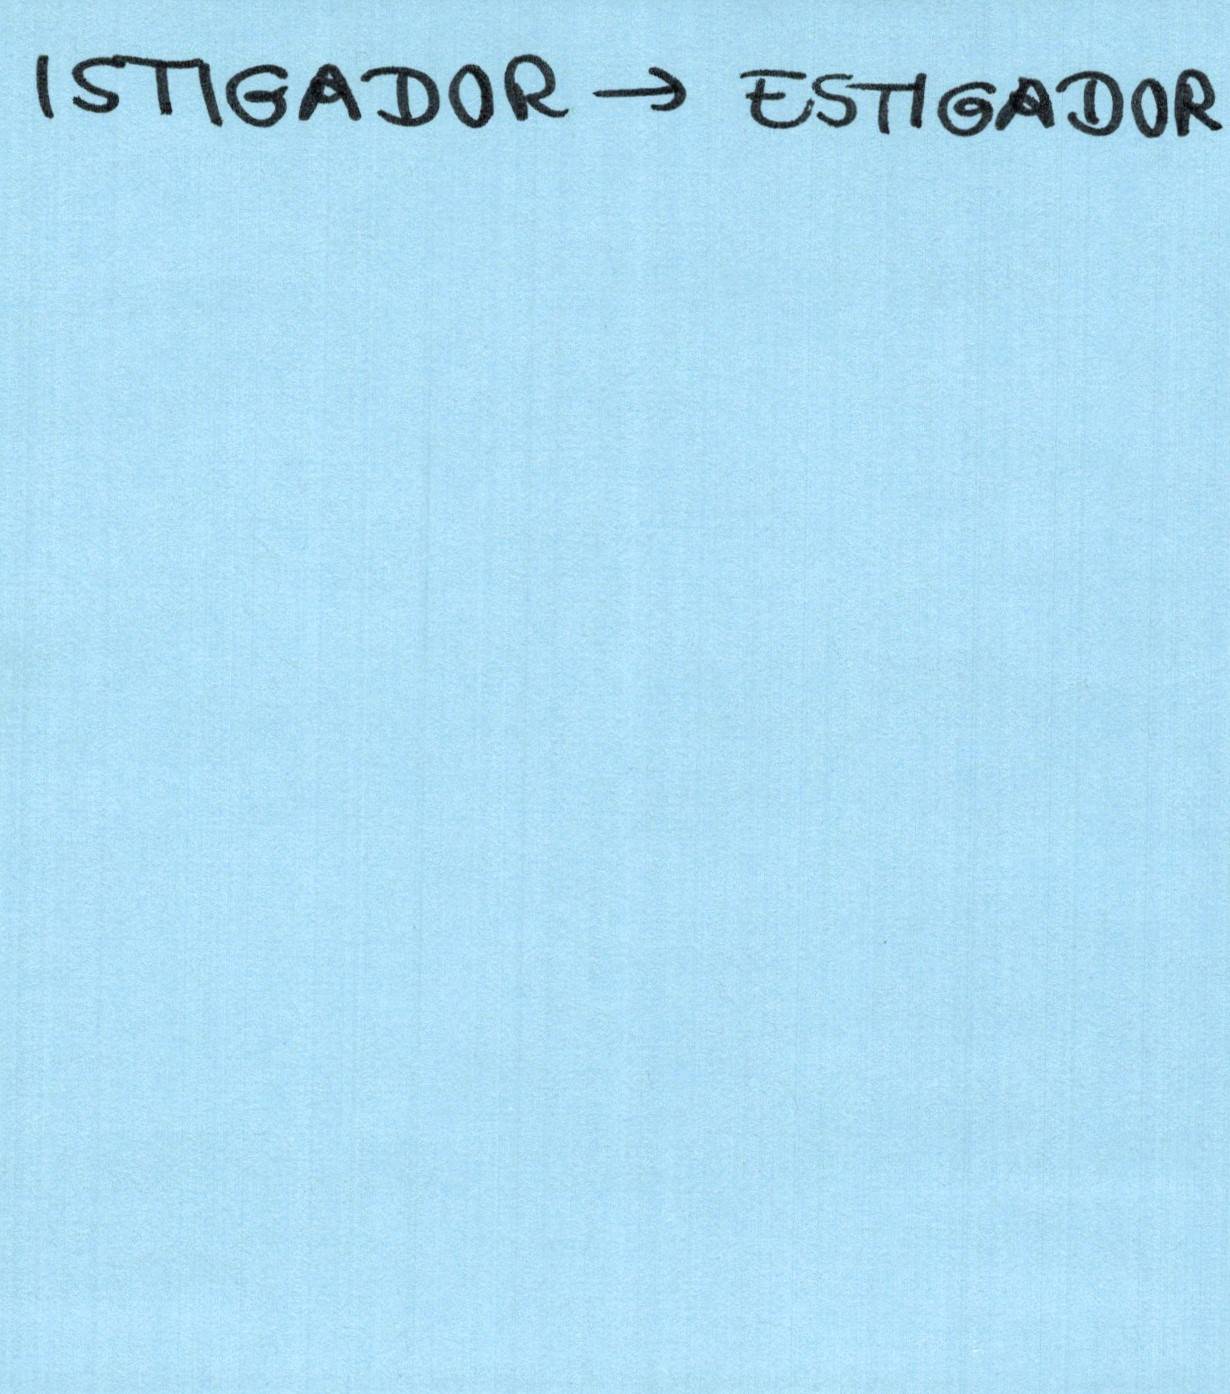 ISTIGADOR → ESTIGADOR